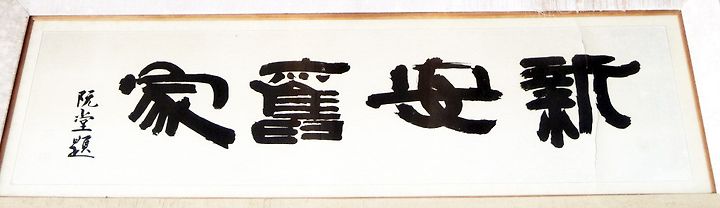 新安舊家
阮堂題